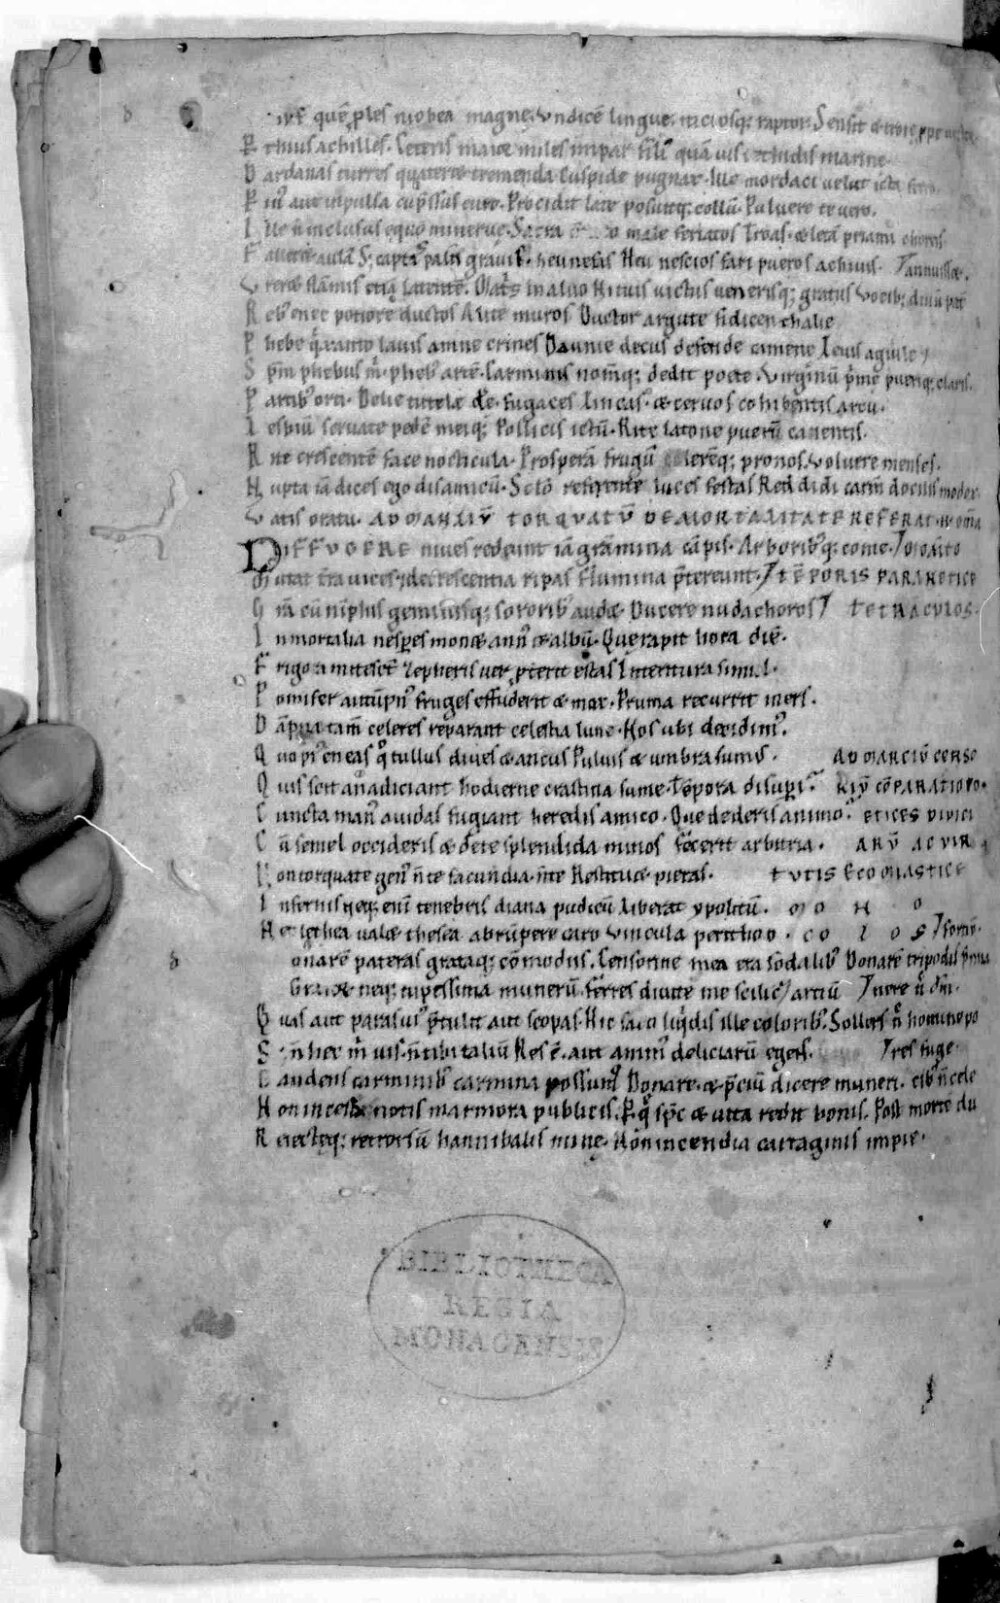 ivẽ quẽ ples niobea magne. Vndicẽ lingue. ticiosq; raptor. Sensit & troie ppe
P thius achilles. Ceteris maior miles impar. filiˀ quã vis thetidis marine.
D ardanas turres quateret tremenda cuspide pugnax. Ille mordaci velut icta ferro
P inˀ aut inpulsa cupssus euro. Procidit late posuitq; collũ. Puluere teucro.
I lle ñ inclusus equo minerue. Sacra male feriatos Troas. & letã priami choris
F alleret aulã S; captˀ palã grauis. heu nefas Heu nescios fari pueros achiuis.
V reret flãmis etiã latentẽ. Matˢ in aluo Ni tuis victus venerisq; gratus Vocib; diuũ pat
R ebˀ enee potiore ductos Alite muros Ductor argute fidicen thalie
P hebe q̃ xanto lauis amne crines Daunie decus defende camene Leuis aguile
S pm̃ phebus m̃. phebˀ artẽ. Carminis nom̃q; dedit poete. Virginũ pˀme pueriq; claris.
P atribˀ orti. Delie tutela dee. fugaces lincas. & ceruos cohibentis arcu.
L esbiũ seruate pedẽ meiq; Pollicis ictũ. Rite latone puerũ canentis.
R ite crescentẽ face noctiluca. Prosperã frugũ celerẽq; pronos. Voluere menses.
N upta iã dices ego dis amicũ. Sclo referente luces festas Reddidi carm̃ docilis modor
V atis oratii. AD MANLIŨ TORQUATŨ DE MORTALITATE REFERAT.
DIFFUGERE niues redeunt iã gramina cãpis. Arboribˀq; come.
M utat tr̃a vices & decrescentia ripas flumina p̃tereunt. TẼPORIS PARANETICE
G ra cũ nimphis geminisq; sororibˀ audet. Ducere nuda choros TETRACOLOS.
I nmortalia ne speres monet annˀ & almũ. Que rapit hora diẽ.
F rigora mitescũt zephiris uer pterit estas Interitura simul.
P omifer autũpnˀ fruges effuderit & mox. Bruma recurrit iners.
D ãpna tam̃ celeres reparant celestia lune. Nos ubi decidimˀ.
Q uo piˀ eneas q̊ tullus diues & ancus Puluis & umbra sumus. AD MARCIŨ CENSO
Q uis scit an adiciant hodierne crastina sume. Tẽpora di supi. RIŨ CÕPARATIO PO
C uncta manˀ auidas fugiant heredis amico. Que dederis animo. ETICES DIVICI
C ũ semel occideris & de te splendida minos fecerit arbitria. ARŨ AC VIR
N on torquate genˀ ñ te facundia. ñ te Restituet pietas. TUTIS ECOMASTICE
I nfernis neq; enĩ tenebris diana pudicũ Liberat ypolitũ. MONO
N ec lethea ualet thesea abrũpere caro Vincula perithoo. COLOS
onarẽ pateras grataq; cõmodus. Censorine mea era sodalibˀ Donarẽ tripodas p̃mia
Graioꝝ neq; tu pessima munerũ. ferres diuite me scilic& artiũ
Q uas aut parasiusˀ ptulit aut scopas. Hic saxo liqˀdis ille coloribˀ. Sollers n̄ hominẽ po
S ; ñ hec m̃ vis. ñ tibi taliũ Res ẽ. aut animˀ deliciarũ egens.
G audens carminibˀ carmina possumˀ Donare. & p̃ciũ dicere muneri.
N on incisa notis marmora publicis. P q̃ spc̃ & uita redit bonis. Post mortẽ du
R eiecteq; retrorsũ hannibalis mine. Non incendia cartaginis impie.
BIBLIOTHECA
REGIA
MONACENSIS